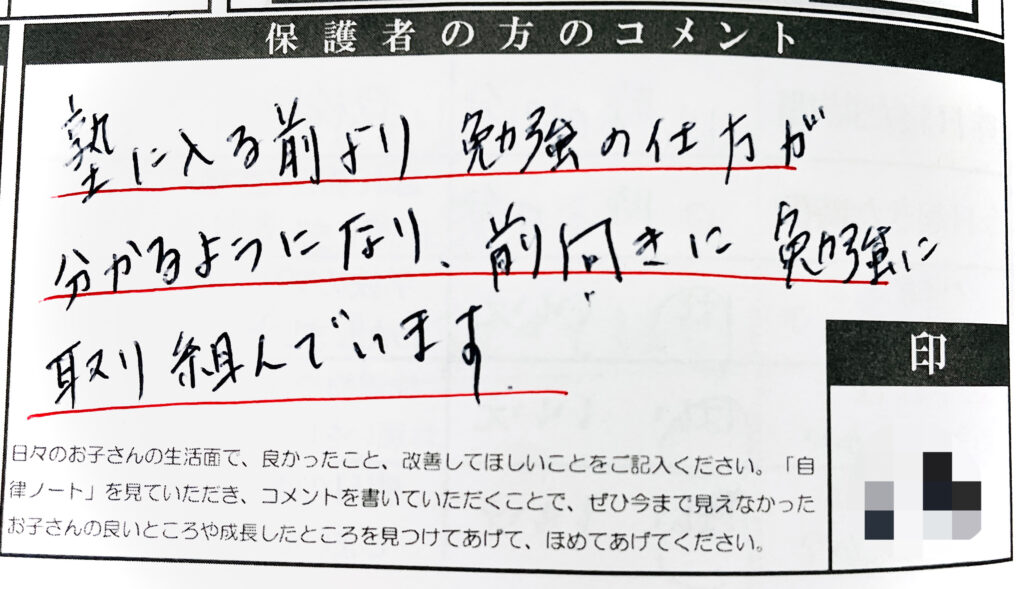 保護者の方のコメント
塾に入る前より 勉強の仕方が
分かるようになり、前向きに 勉強に
取り組んでいます
印
日々のお子さんの生活面で、良かったこと、改善してほしいことをご記入ください。「自
律ノート」を見ていただき、コメントを書いていただくことで、ぜひ今まで見えなかった
お子さんの良いところや成長したところを見つけてあげて、ほめてあげてください。